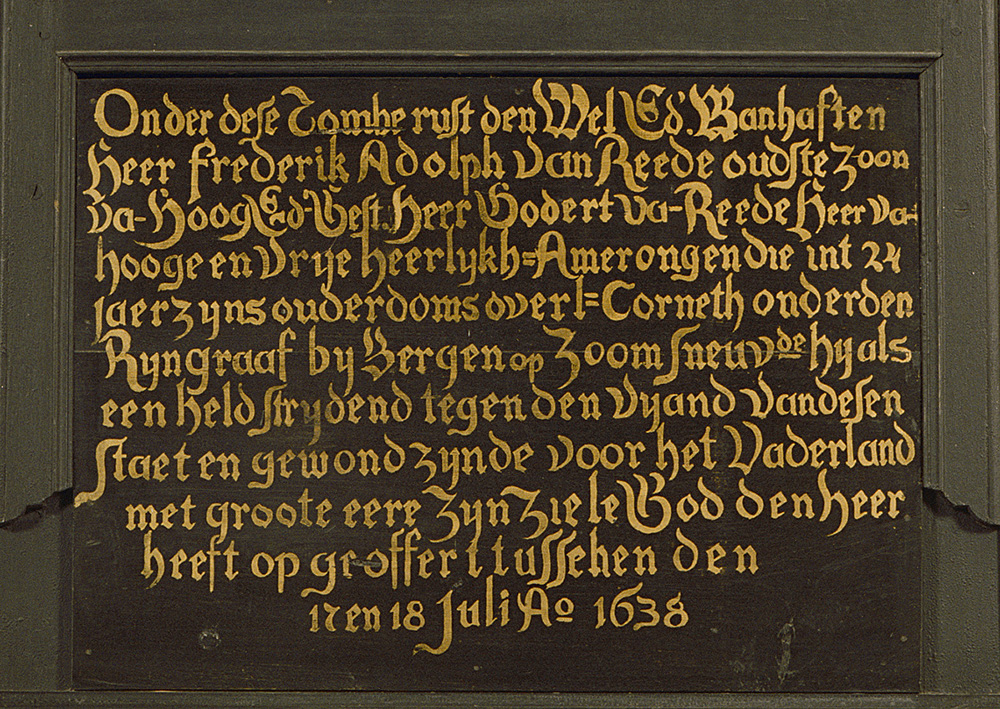 Onder dese Tombe ryst den Wel Ed. Manhaften
Heer frederik Adolph van Reede oudste zoon
va- Hoog Ed- Gest. Heer Godert va- Reede Heer va-
hooge en vrije heerlykh= Amerongen die int 24
Jaer zyns ouderdoms overl= Corneth onder den
Ryngraaf by Bergen op Zoom sneuvde hy als
een held strydend tegen den vyand van desen
staet en gewond zynde voor het vaderland
met groote eere Zyn Ziele God den heer
heeft op groffert tusschen den
17 en 18 Juli Ao 1638